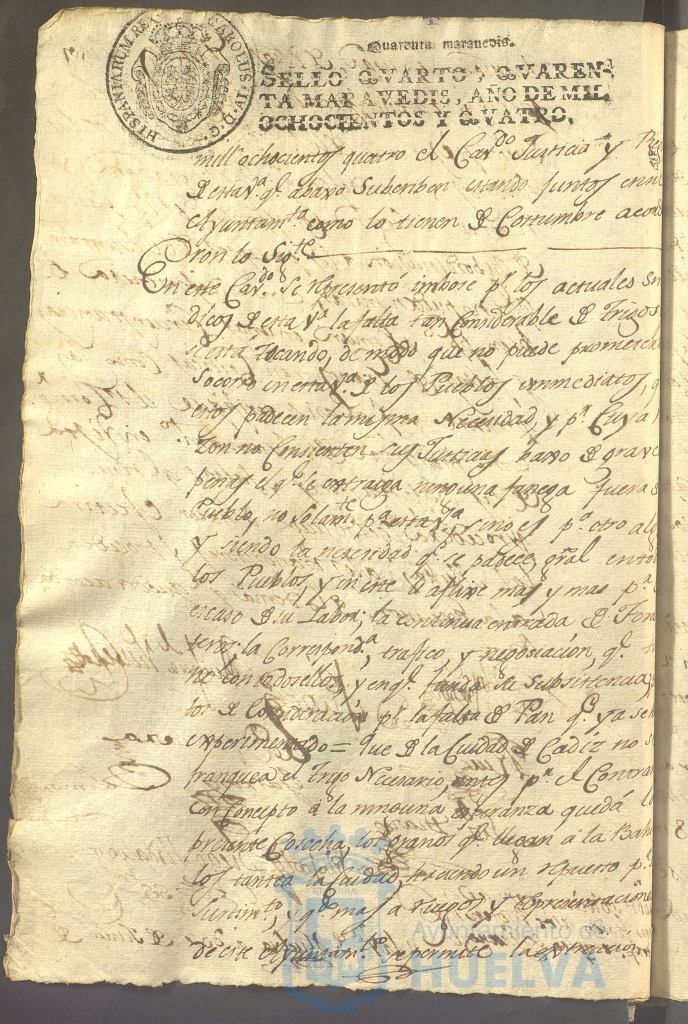 HISPANIARUM REX CAROLUS IV D G
Quarenta maravedis.
SELLO QVARTO, QVAREN-
TA MARAVEDIS, AÑO DE MIL
OCHOCIENTOS Y QVATRO.
mill ochocientos quatro el Cavdo Justicia y
De esta va. q. abaxo Subcriben estando juntos en
Ayuntamto como lo tienen de Costumbre acor
ron lo Sigte
En este Cavdo. Se representó pr. los actuales Sin
dicos De esta Va. la falta tan Considerable de Trigos
está tocando, de modo que no puede
Socorro en esta va. y los Pueblos inmediatos,
estos padecen la misma Necesidad, y pr. Cuya
zon no Consienten sus Justicias baxo de graves
penas el q. se extraiga ninguna fanega fuera
Pueblo, no Solamte pa esta va. sino es pa. otro al
y siendo la necesidad q. se padece gral en to
los Pueblos, y en este mas y mas pr.
escaso de su Labor; la continua entrada de
la Correspondа, trafico, y negociación, q.
ne con todos ellos, y en q. funda su Subsistencia,
los de Consideración pr. la falta de Pan q. ya se
experimentado = Que de la Ciudad de Cadiz no s
franquea el trigo Necesario, antes pr. el Contra
Concepto á la ninguna esperanza queda
presente Cosecha, los granos q. llegan á la Bah
los tantea la Ciudad, haciendo un repuesto pa.
Surtimto, y q. mas a ruegos y representación
de este Ayuntamto. se permite la extraccion
Ayuntamiento de
HUELVA